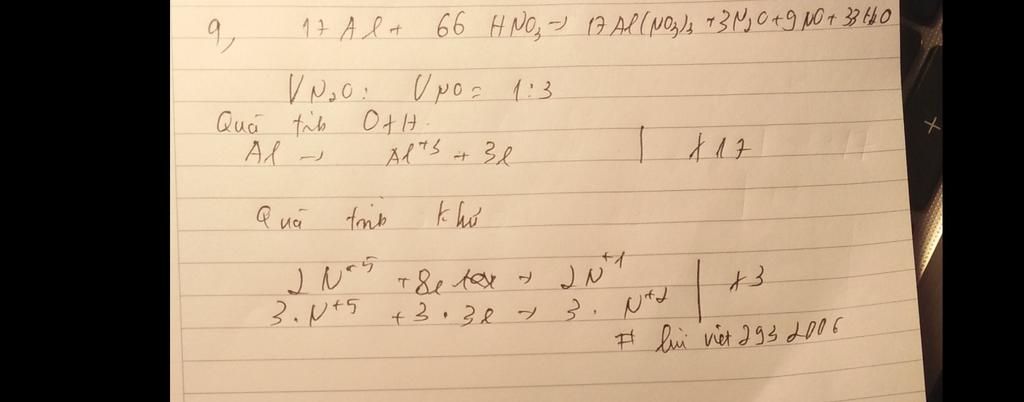 9, 17 Al + 66 HNO3 → 17 Al(NO3)3 + 3N2O + 9NO + 33H2O
VN2O : VNO = 1:3
Quá trìh OXH
Al → Al+3 + 3e | x 17
Quá trìh khử
2N+5 + 8e → 2N+1 | x3
3.N+5 + 3.3e → 3.N+2
# lui việt 293 2006